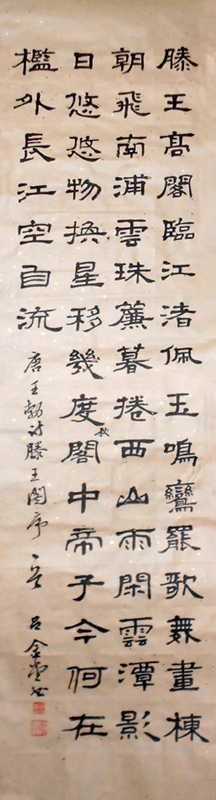 滕王高閣臨江渚佩玉鳴鸞罷歌舞畫棟
朝飛南浦雲珠簾暮捲西山雨閑雲潭影
日悠悠物換星移幾度秋閣中帝子今何在
檻外長江空自流
唐王勃詩滕王閣序
呂金書